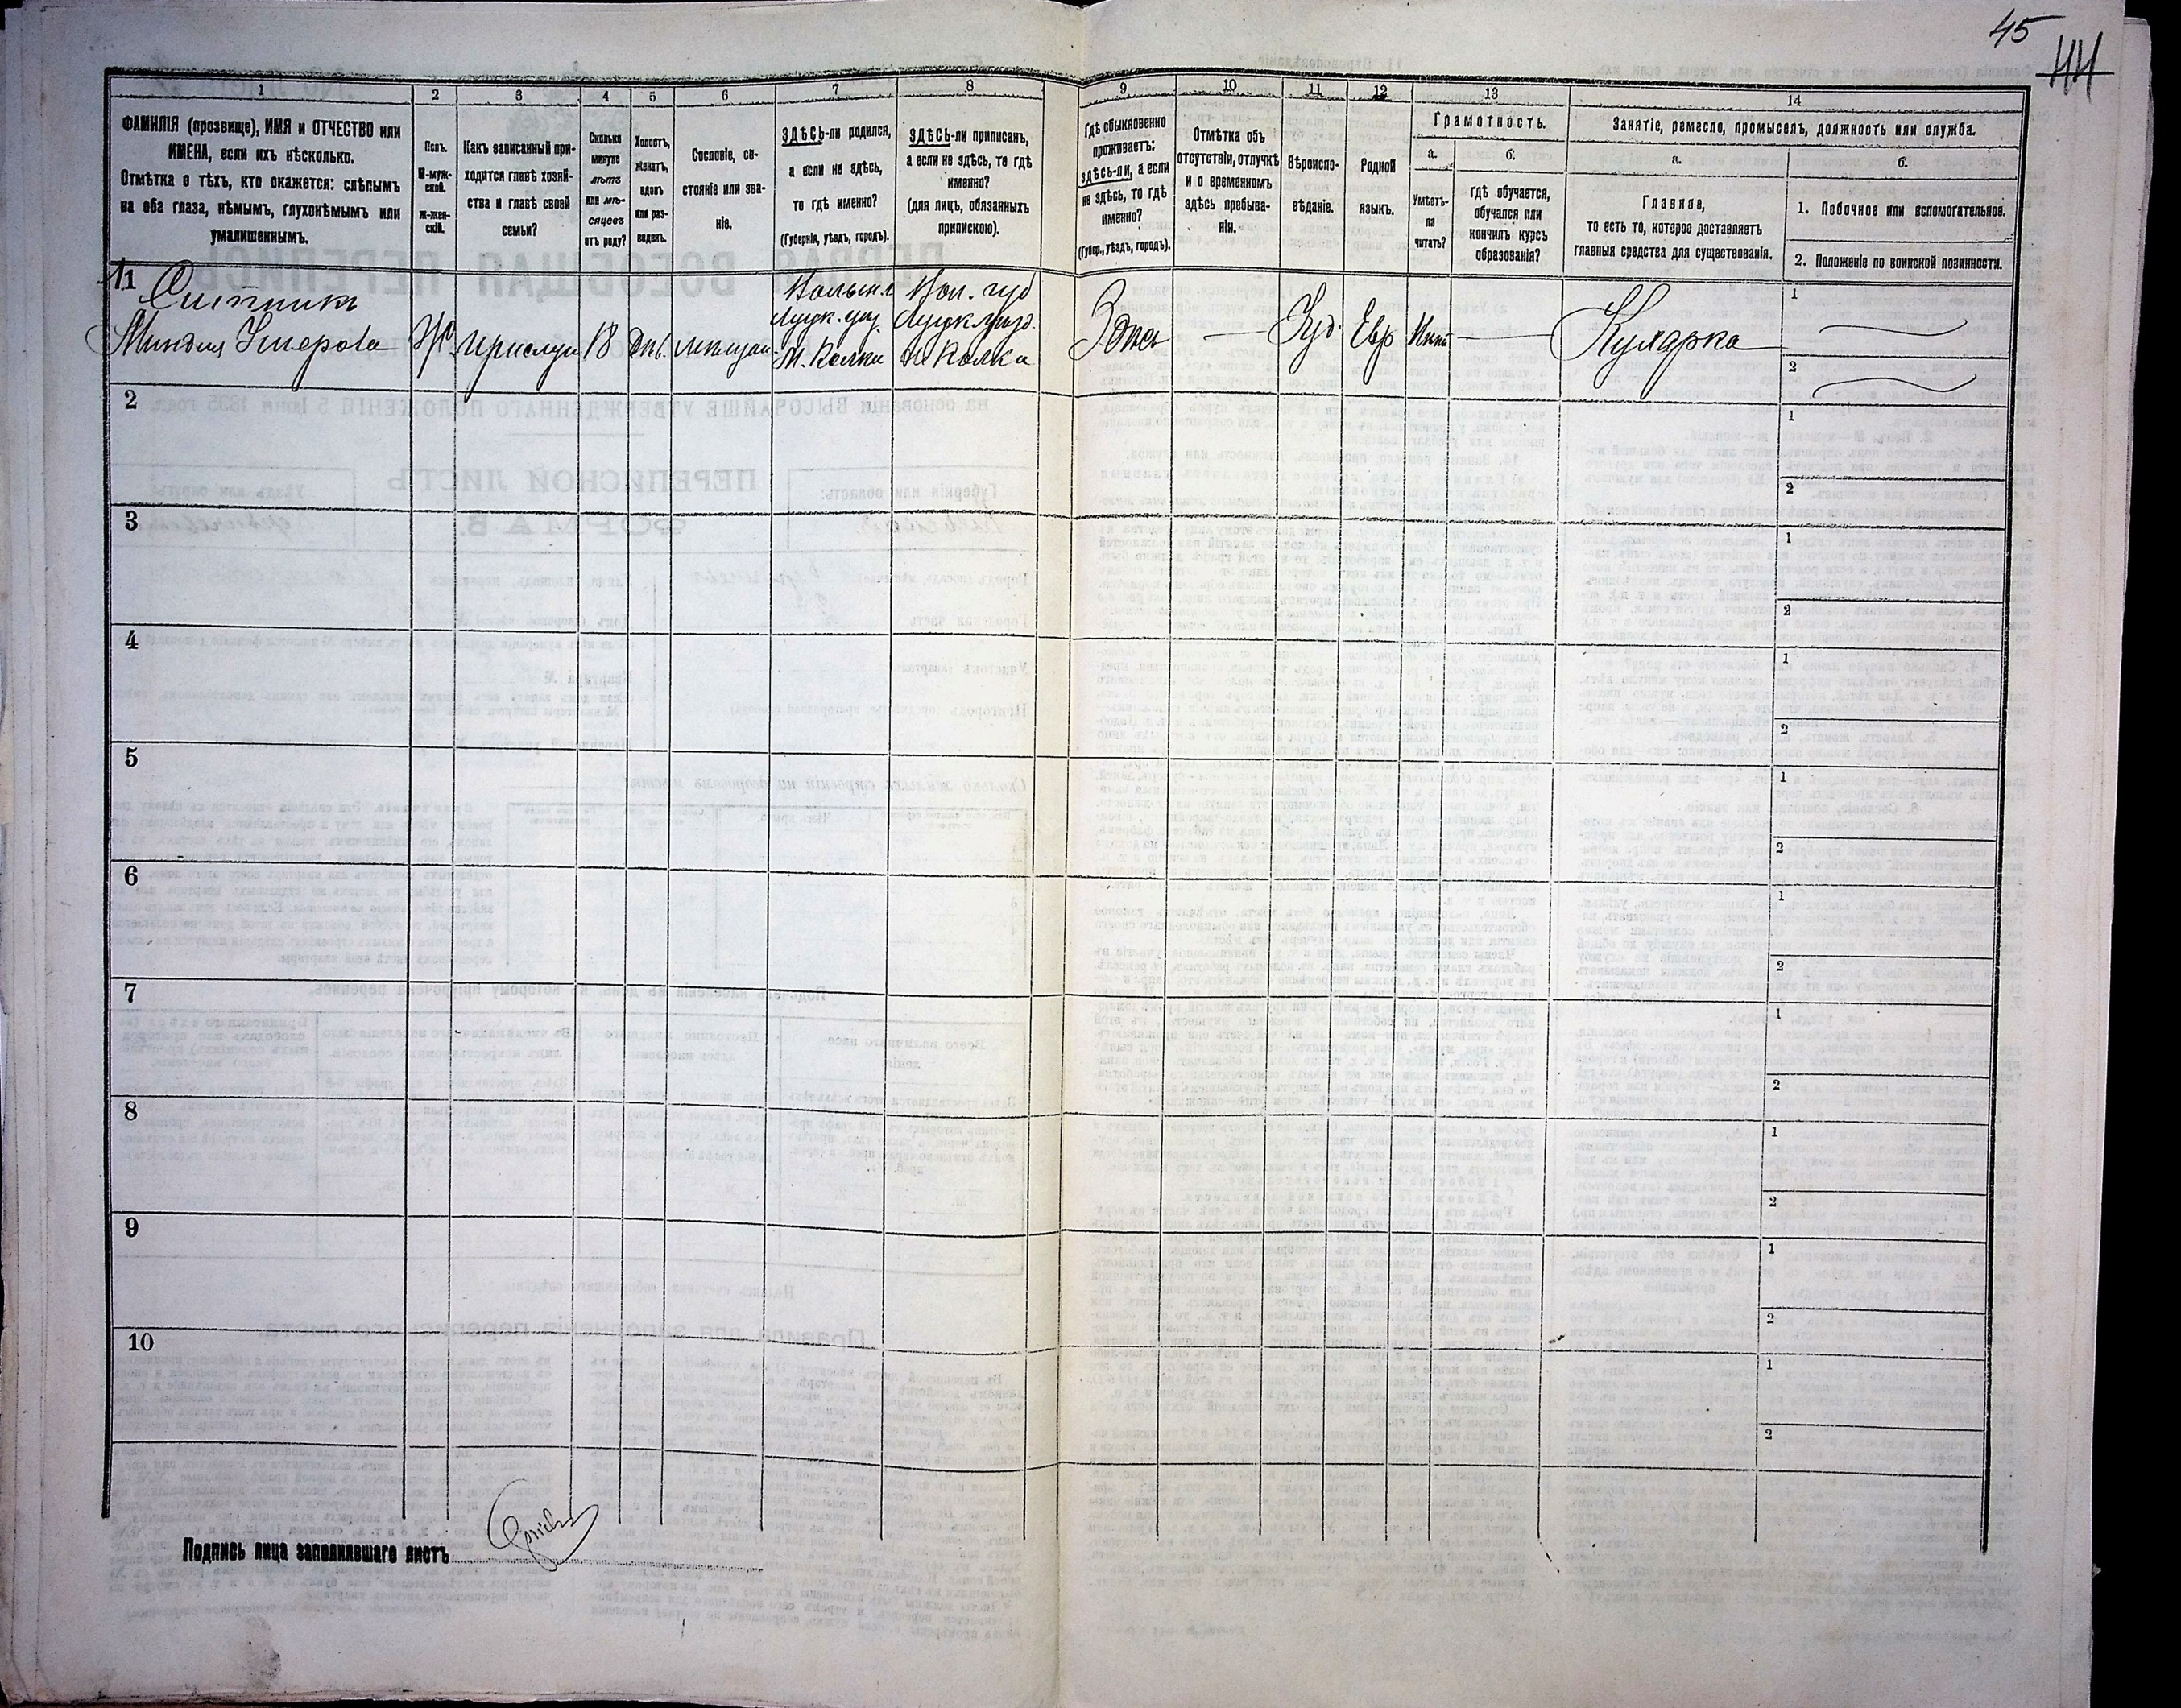 45
44
1
2
3
4
5
6
7
8
9
10
11
12
13
14
ФАМИЛІЯ (прозвище), ИМЯ и ОТЧЕСТВО или
ИМЕНА, если ихъ нѣсколько.
Отмѣтка о тѣхъ, кто окажется: слѣпымъ
на оба глаза, нѣмымъ, глухонѣмымъ или
умалишеннымъ.
Полъ.
М-муж-
ской.
ж-жен-
скій.
Какъ записанный при-
ходится главѣ хозяй-
ства и главѣ своей
семьи?
Сколько
минуло
лѣтъ
или мѣ-
сяцевъ
отъ роду?
Холостъ,
женатъ,
вдовъ
или раз-
веденъ.
Сословіе, со-
стояніе или зва-
ніе.
ЗДѢСЬ-ли родился,
а если не здѣсь,
то гдѣ именно?
(Губернія, уѣздъ, городъ).
ЗДѢСЬ-ли приписанъ,
а если не здѣсь, то гдѣ
именно?
(для лицъ, обязанныхъ
припискою).
Гдѣ обыкновенно
проживаетъ:
здѣсь-ли, а если
не здѣсь, то гдѣ
именно?
(Губер., уѣздъ, городъ).
Отмѣтка объ
отсутствіи, отлучкѣ
и о временномъ
здѣсь пребыва-
ніи.
Вѣроиспо-
вѣданіе.
Родной
языкъ.
Грамотность.
а.
б.
Умѣетъ-
ли
читать?
гдѣ обучается,
обучался или
кончилъ курсъ
образованія?
Занятіе, ремесло, промыселъ, должность или служба.
а.
б.
Главное,
то есть то, которое доставляетъ
главныя средства для существованія.
1. Побочное или вспомогательное.
2. Положеніе по воинской повинности.
11
Ситникъ
Миндля
Ж
прислуга
18
дѣв.
Волынс
Луцк. уѣз.
М. Колки
Вол. губ
Луцк. уѣзд.
М. Колка
Здѣсь
Іуд.
Евр
Нѣтъ
Кухарка
1
2
2
1
2
3
1
2
4
1
2
5
1
2
6
1
2
7
1
2
8
1
2
9
1
2
10
1
2
Подпись лица заполнявшаго листъ